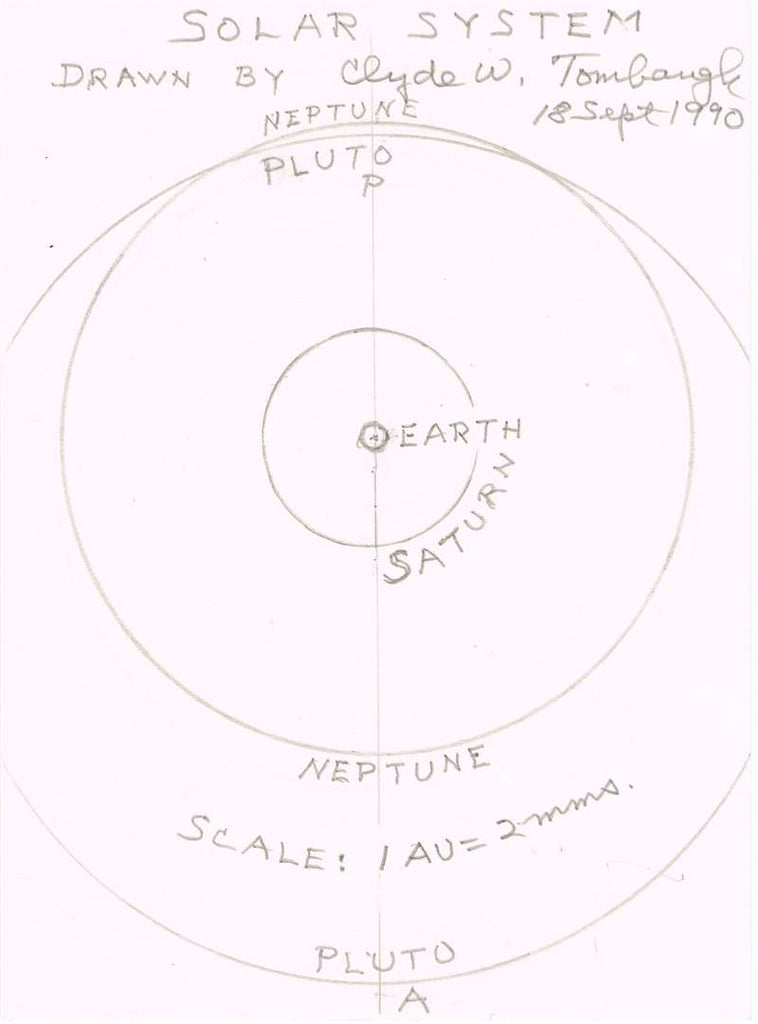 SOLAR SYSTEM
DRAWN BY Clyde W. Tombaugh
18 Sept 1990
NEPTUNE
PLUTO
P
EARTH
SATURN
NEPTUNE
SCALE: 1 AU = 2 mms.
PLUTO
A